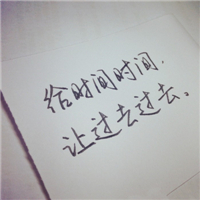 给时间时间.
让过去过去。